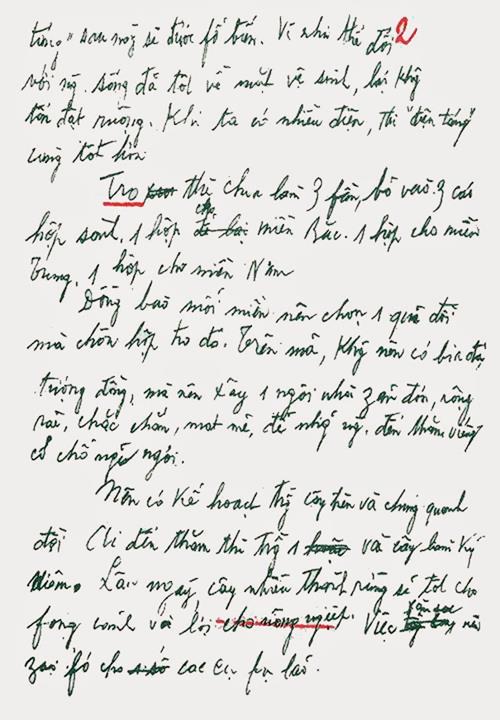 táng" sau này sẽ được fổ biến. Vì như thế đối 2
với ng. sống đã tốt về mặt vệ sinh, lại khg
tốn đất ruộng. Khi ta có nhiều điện, thì "điện táng"
càng tốt hơn
Tro thì chia làm 3 fần, bỏ vào 3 cái
hộp sành. 1 hộp cho miền Bắc. 1 hộp cho miền
Trung. 1 hộp cho miền Nam
Đồng bào mỗi miền nên chọn 1 quả đồi
mà chôn hộp tro đó. Trên mả, khg nên có bia đá,
tượng đồng, mà nên xây 1 ngôi nhà zản đơn, rộng
rãi, chắc chắn, mát mẻ, để những ng. đến thăm viếng
có chỗ nghỉ ngơi.
Nên có kế hoạch trg cây trên và chung quanh
đồi. Ai đến thăm thì trg 1 vài cây làm kỷ
niệm. Lâu ngày, cây nhiều thành rừng sẽ tốt cho
fong cảnh và lợi cho nông nghiệp. Việc săn sóc nên
zao fó cho các cụ fụ lão.